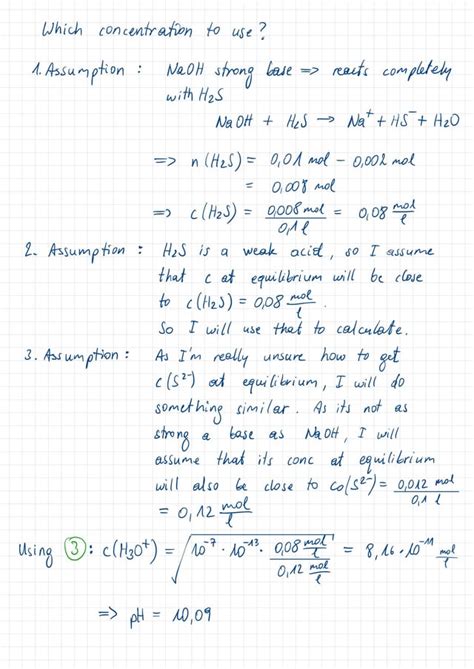 Which concentration to use?
1. Assumption : NaOH strong base => reacts completely
with H₂S
NaOH + H₂S → Na⁺ + HS⁻ + H₂O
=> n(H₂S) = 0,01 mol - 0,002 mol
= 0,008 mol
=> c(H₂S) = 0,008 mol / 0,1 l = 0,08 mol/l
2. Assumption : H₂S is a weak acid, so I assume
that c at equilibrium will be close
to c(H₂S) = 0,08 mol/l .
So I will use that to calculate.
3. Assumption : As I'm really unsure how to get
c(S²⁻) at equilibrium, I will do
something similar. As its not as
strong a base as NaOH, I will
assume that its conc at equilibrium
will also be close to c₀(S²⁻) = 0,012 mol / 0,1 l
= 0,12 mol/l
Using ③ : c(H₃O⁺) = √(10⁻⁷ · 10⁻¹³ · 0,08 mol/l / 0,12 mol/l) = 8,16 · 10⁻¹¹ mol/l
=> pH = 10,09